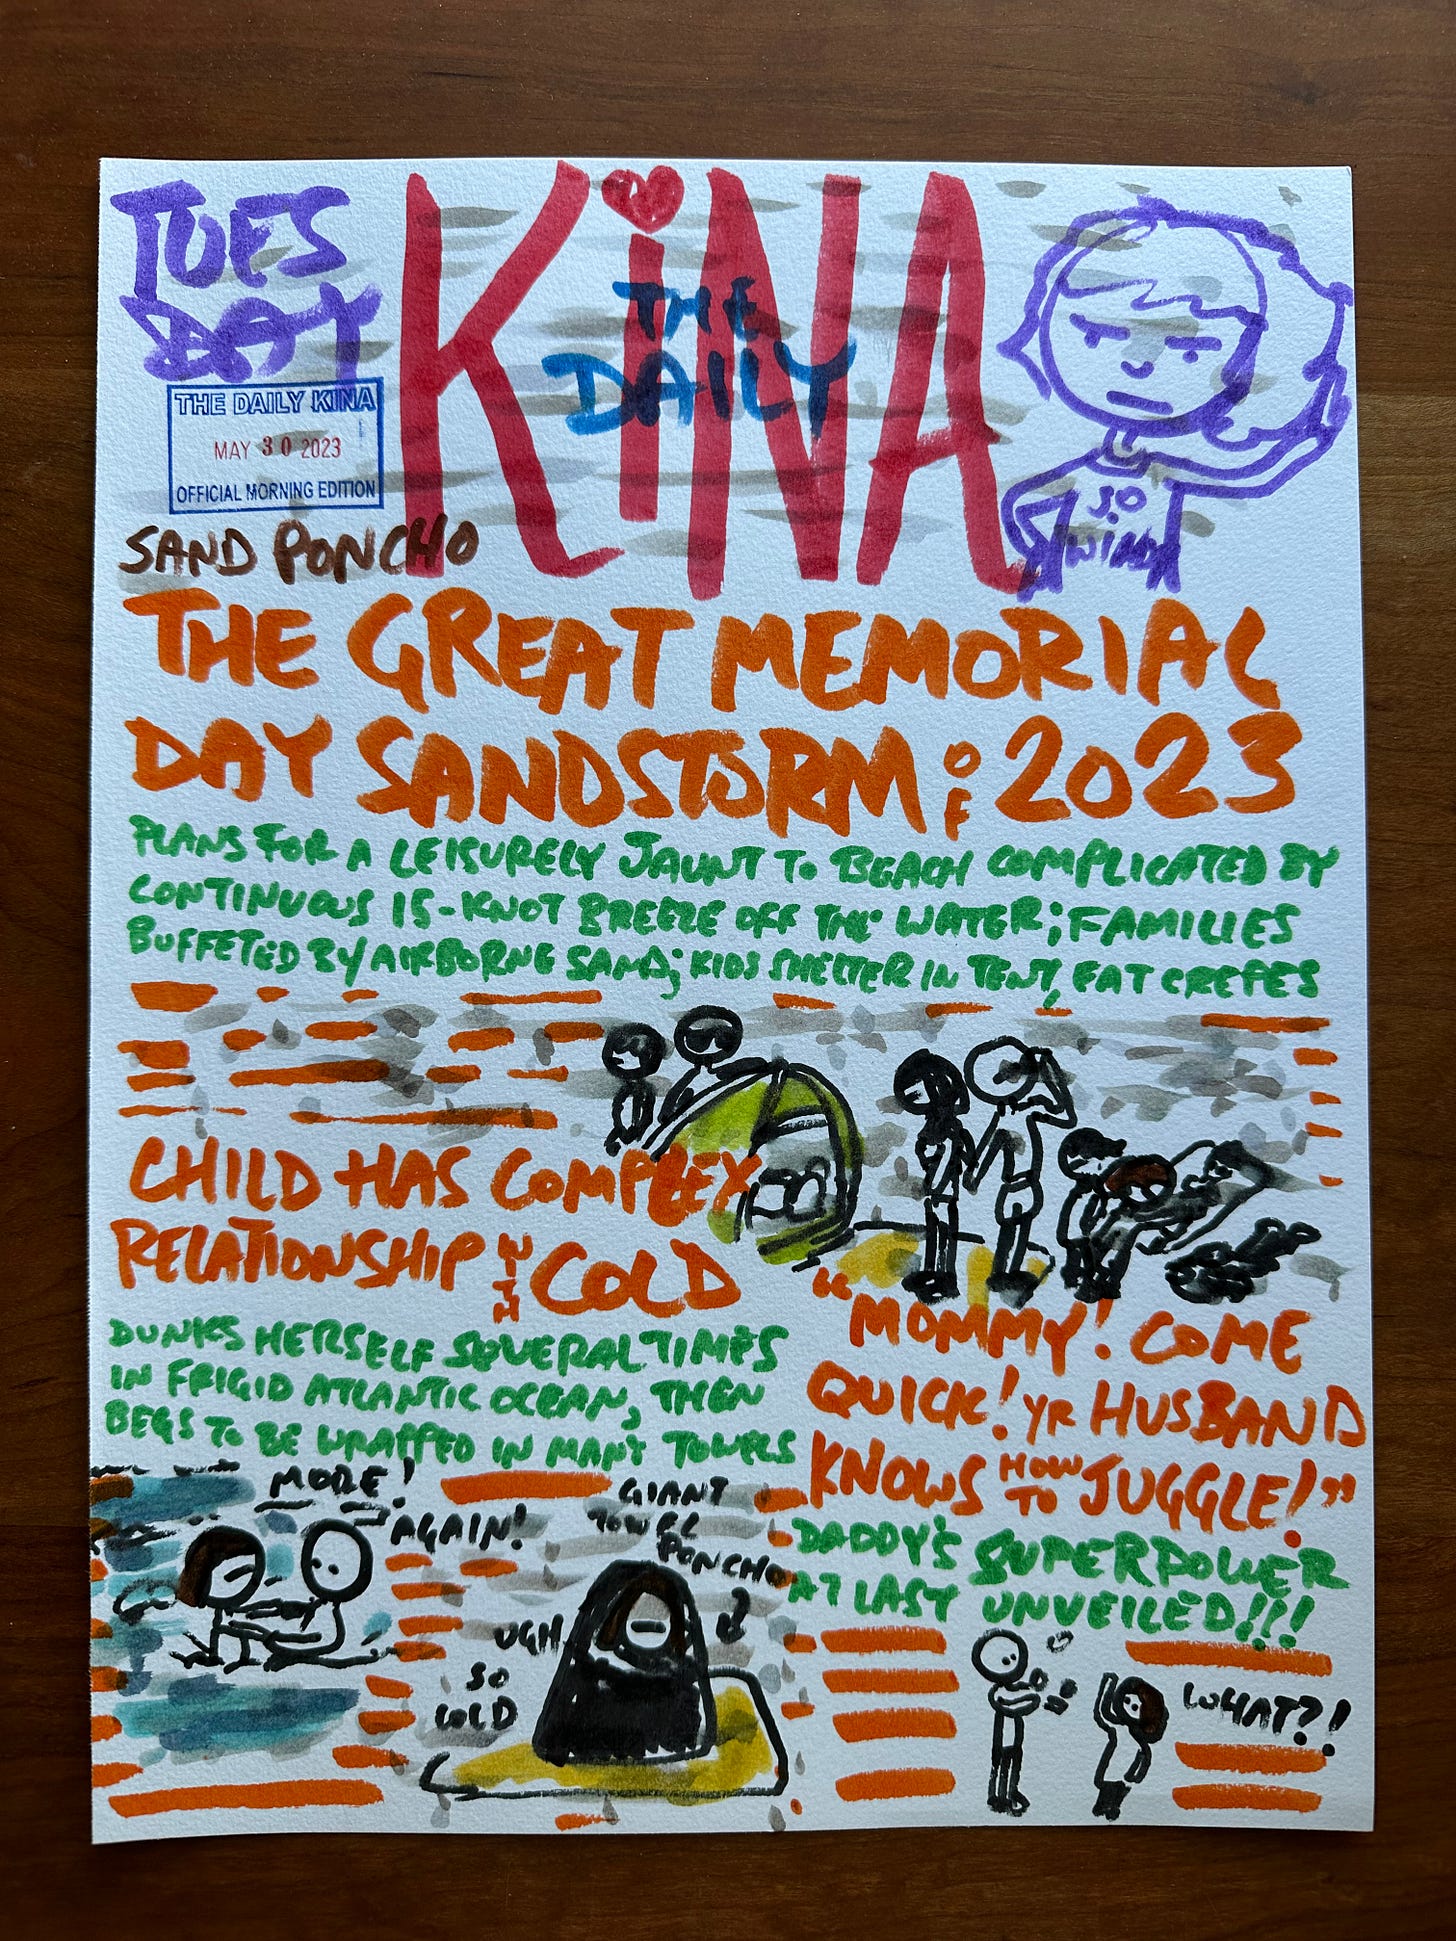 TUES
DAY
KiNA
THE
DAILY
THE DAILY KINA
MAY 30 2023
OFFICIAL MORNING EDITION
SO
WINDY
SAND PONCHO
THE GREAT MEMORIAL
DAY SANDSTORM OF 2023
PLANS FOR A LEISURELY JAUNT TO BEACH COMPLICATED BY
CONTINUOUS 15-KNOT BREEZE OFF THE WATER; FAMILIES
BUFFETED BY AIRBORNE SAND; KIDS SHELTER IN TENT, EAT CREPES
CHILD HAS COMPLEX
RELATIONSHIP WITH COLD
DUNKS HERSELF SEVERAL TIMES
IN FRIGID ATLANTIC OCEAN, THEN
BEGS TO BE WRAPPED IN MANY TOWELS
MORE!
AGAIN!
GIANT
TOWEL
PONCHO
UGH
SO
COLD
"MOMMY! COME
QUICK! YR HUSBAND
KNOWS HOW TO JUGGLE!"
DADDY'S SUPERPOWER
AT LAST UNVEILED!!!
WHAT?!